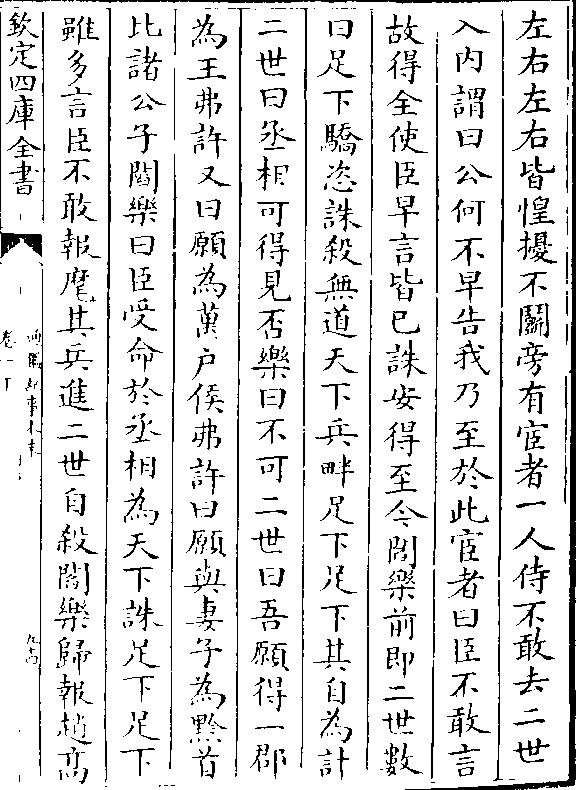 左右左右皆惶擾不鬬旁有宦者一人侍不敢去二世
入内謂曰公何不早告我乃至於此宦者曰臣不敢言
故得全使臣早言皆已誅安得至今閻樂前即二世數
曰足下驕恣誅殺無道天下兵畔足下足下其自為計
二世曰丞相可得見否樂曰不可二世曰吾願得一郡
為王弗許又曰願為萬户侯弗許曰願與妻子為黔首
比諸公子閻樂曰臣受命於丞相為天下誅足下足下
雖多言臣不敢報麾其兵進二世自殺閻樂歸報趙髙
欽定四庫全書